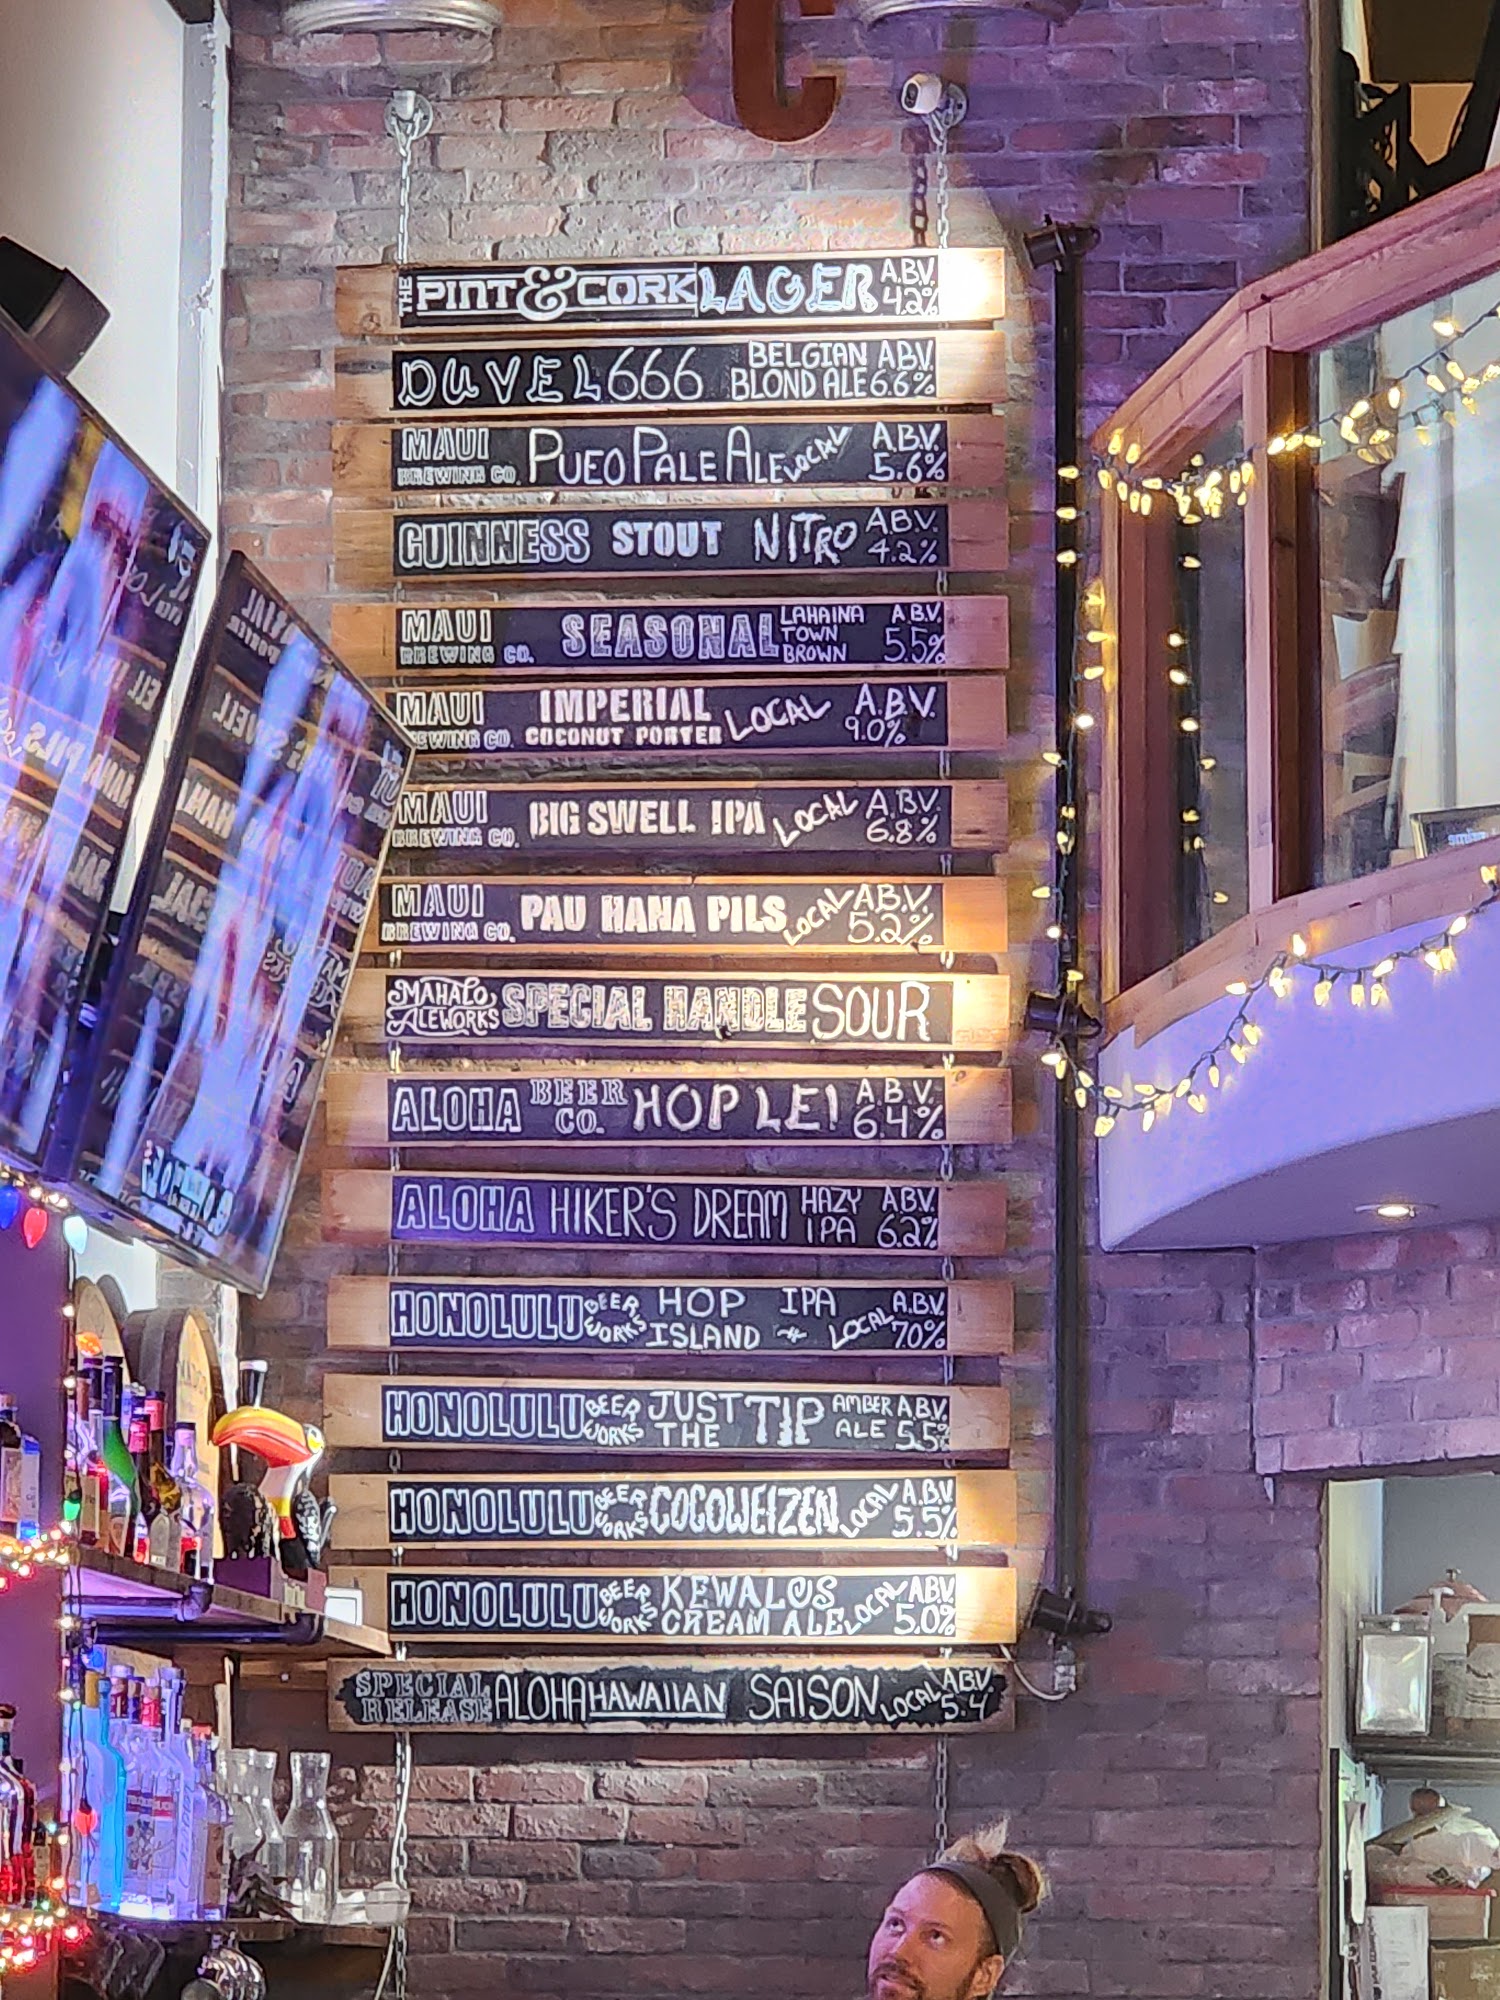 C
THE PINT & CORK LAGER A.B.V. 4.2%
DUVEL 666 BELGIAN BLOND ALE A.B.V. 6.6%
MAUI BREWING CO. PUEO PALE ALE LOCAL A.B.V. 5.6%
GUINNESS STOUT NITRO A.B.V. 4.2%
MAUI BREWING CO. SEASONAL LAHAINA TOWN BROWN A.B.V. 5.5%
MAUI BREWING CO. IMPERIAL COCONUT PORTER LOCAL A.B.V. 9.0%
MAUI BREWING CO. BIG SWELL IPA LOCAL A.B.V. 6.8%
MAUI BREWING CO. PAU HANA PILS LOCAL A.B.V. 5.2%
MAHALO ALEWORKS SPECIAL HANDLE SOUR
ALOHA BEER CO. HOP LEI A.B.V. 6.4%
ALOHA HIKER'S DREAM HAZY IPA A.B.V. 6.2%
HONOLULU BEER WORKS HOP ISLAND IPA LOCAL A.B.V. 7.0%
HONOLULU BEER WORKS JUST THE TIP AMBER ALE A.B.V. 5.5%
HONOLULU BEER WORKS COCOWEIZEN LOCAL A.B.V. 5.5%
HONOLULU BEER WORKS KEWALOS CREAM ALE LOCAL A.B.V. 5.0%
SPECIAL RELEASE ALOHA HAWAIIAN SAISON LOCAL A.B.V. 5.4